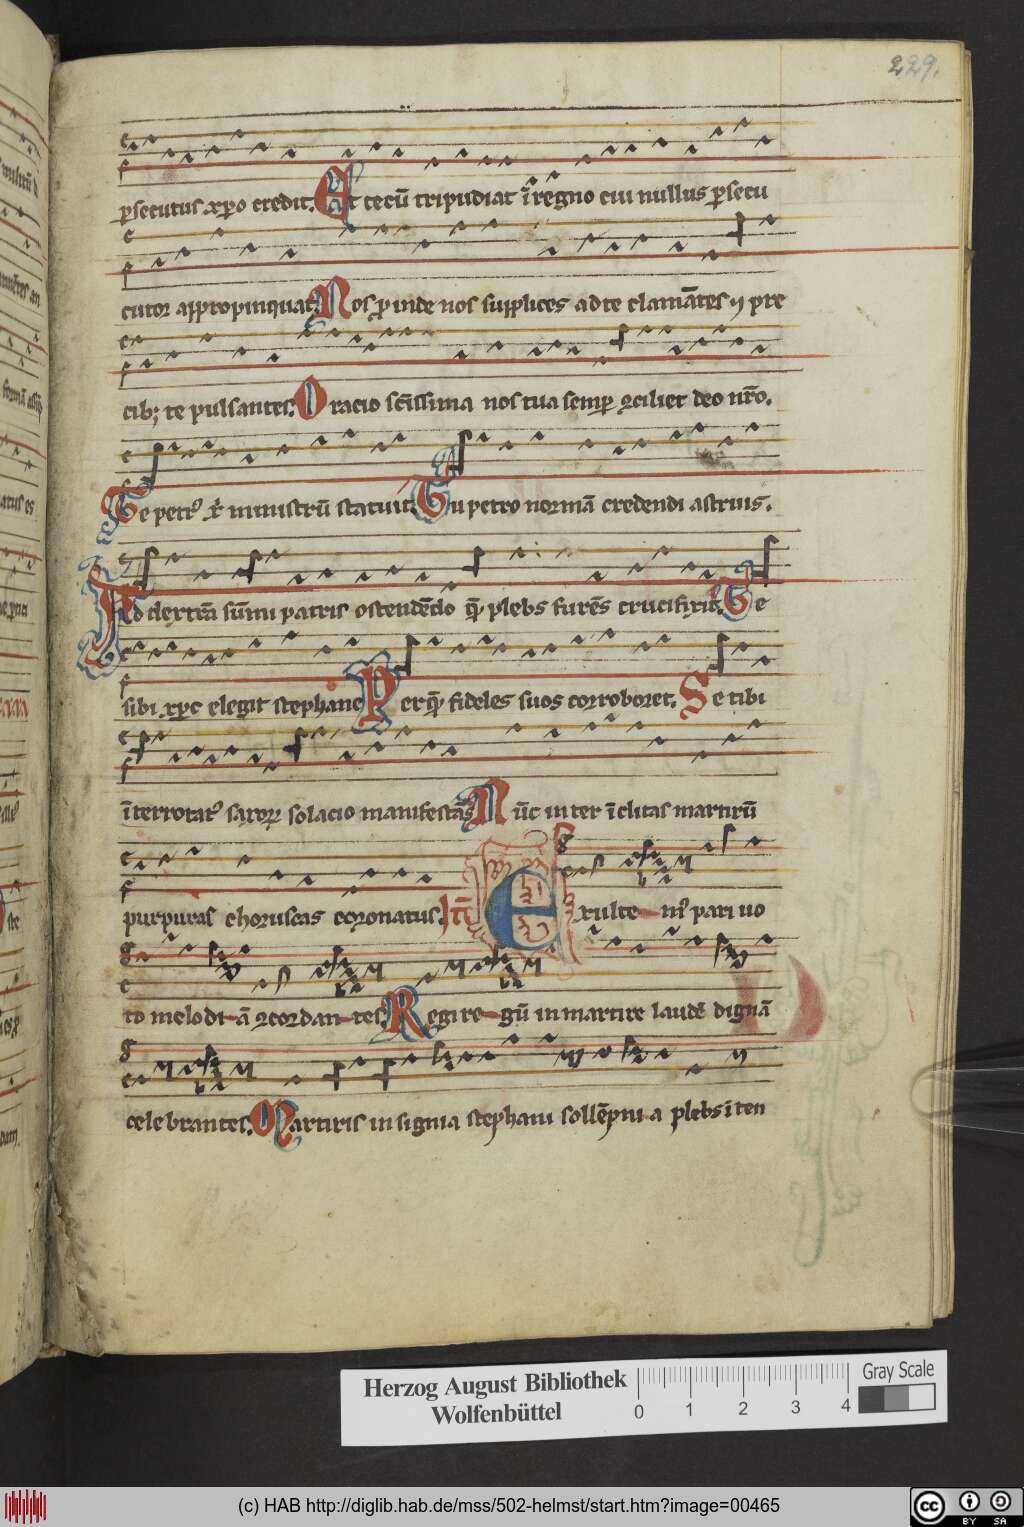 229.
ꝑsecutus xꝑo credit. Et tecū tripudiat ī regno cui nullus ꝑsecu
cutor appropinquat. Nos ꝓinde nos supplices ad te clamātes ⁊ pre
cib; te pulsantes. Oracio scīssima nos tua semꝑ ꝯciliet deo nr̄o.
Te petrꝰ xp̄i ministrū statuit. Tu petro normā credendi astruis.
Ad dextrā sūmi patris ostendēdo qē plebs furēs crucifixit. Te
sibi xp̄c elegit stephane Per qē fideles suos corroboret. Se tibi
īterrotatꝰ saxoꝝ solacio manifestās Nūc inter īclitas martirū
purpuras choruscas coronatus. Itē Exulte mꝰ pari uo
to melodi-ā ꝯcordan-tes. Regi re-gū in martire laudē dignā
celebrantes. Martiris in signia stephani sollēpni-a plebs īten
Herzog August Bibliothek
Wolfenbüttel
0 1 2 3 4
Gray Scale
(c) HAB http://diglib.hab.de/mss/502-helmst/start.htm?image=00465
cc BY SA